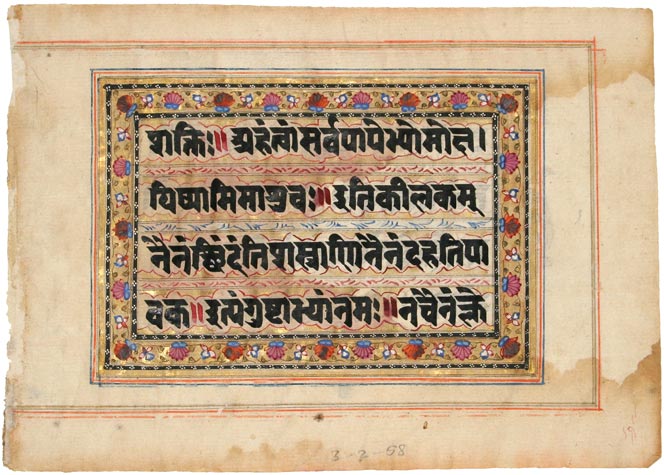 शक्तिः॥ अहंत्वांसर्वपापेभ्योमोक्ष।
यिष्यामिमाशुचः॥इतिकीलकम्
नैनंछिंदंतिशस्त्राणिनैनंदहतिपा
वक॥इत्यंगुष्टाभ्यांनमः॥नचैनंक्ले